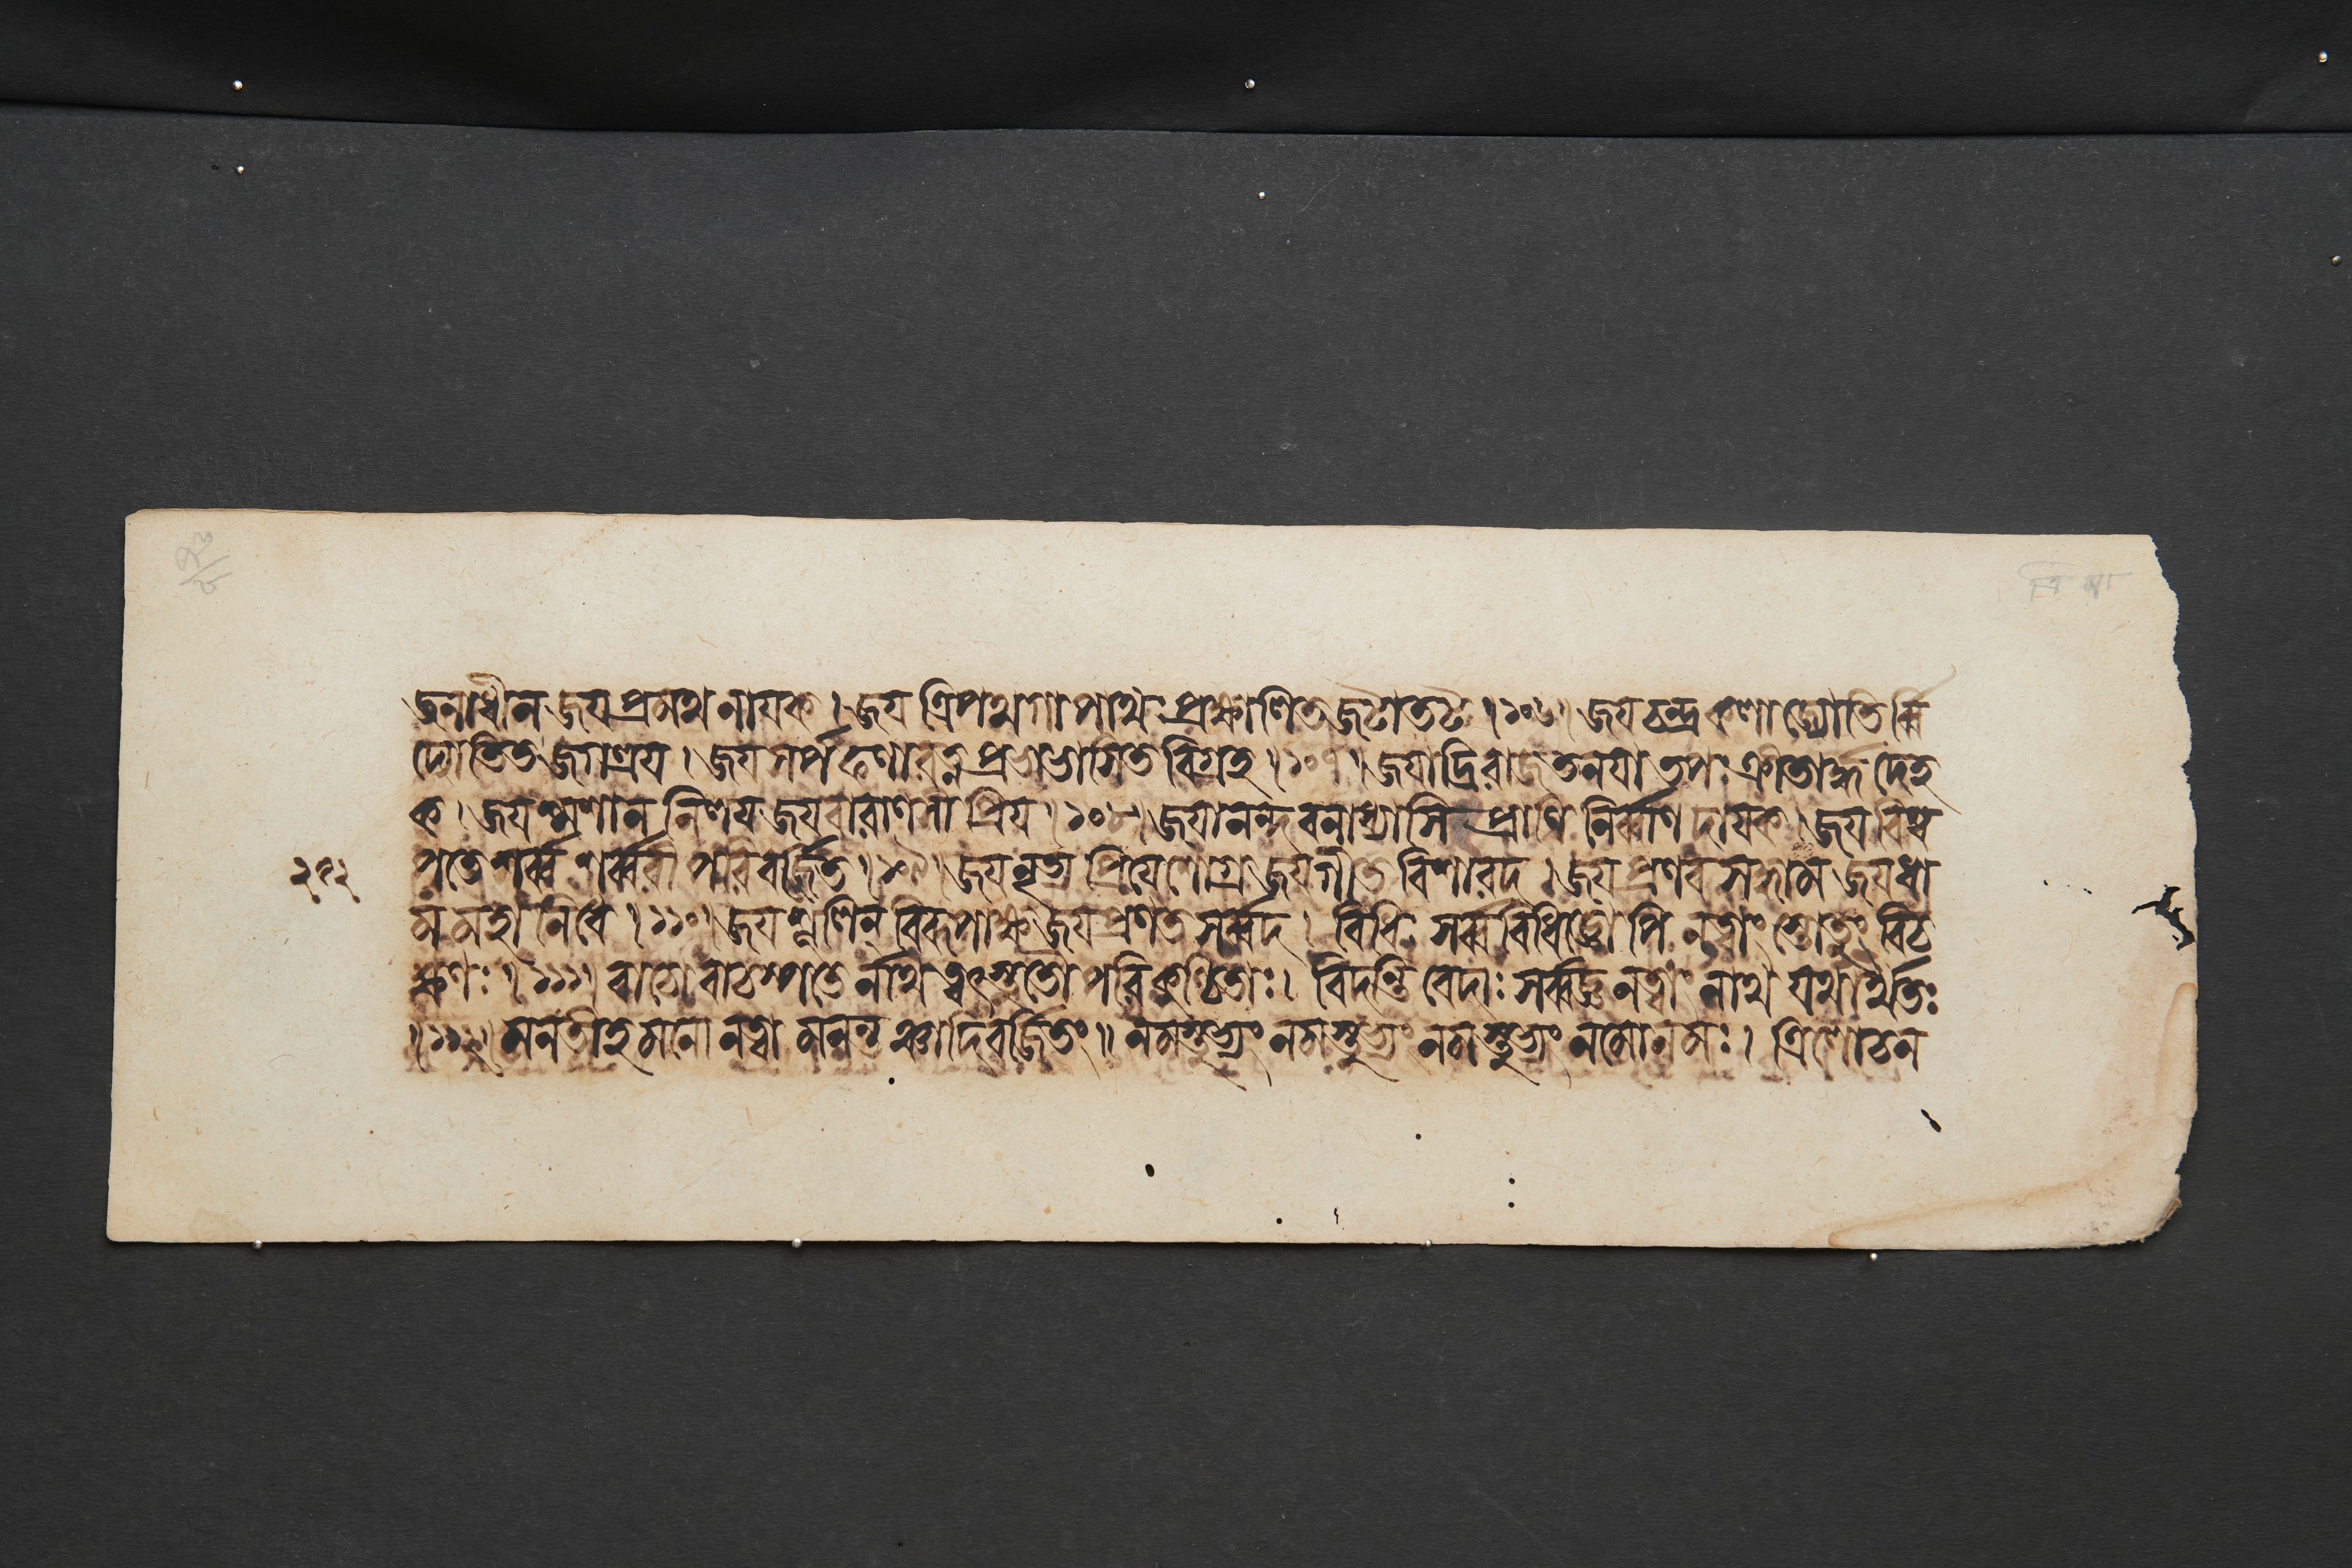 জনাধীন জয প্রমথনাযক । জয ত্রিপথগাপাথঃপ্রক্ষালিতজটাতট । ১০৬ । জয চন্দ্রকলাজ্যোতির্ব্বি
দ্যোতিতজগত্রয । জয সর্পফণারত্নপ্রভাভাসিতবিগ্রহ । ১০৭ । জযাদ্রিরাজতনযাতপঃক্রীতার্দ্ধদেহ
ক । জয শ্মশাননিলয জয বারাণসীপ্রিয । ১০৮ । জযানন্দবনাধ্যাসি প্রাণিনির্ব্বাণদাযক । জয বিশ্ব
২৭২ পতে শর্ব্ব শর্ব্বরীপরিবর্জিত । ১০৯ । জয নৃত্যপ্রিযেশোগ্র জয গীতবিশারদ । জয প্রণবসদ্ধাম জয ধা
মমহানিধে । ১১০ । জয শূলিন্ বিরূপাক্ষ জয প্রণতসর্ব্বদ । বিধিঃ সর্ব্ববিধিজ্ঞোপি নত্বাং স্তোতুং বিচ
ক্ষণঃ । ১১১ । বাচো বাচস্পতের্নাথ ত্বৎস্তুতৌ পরিকুণ্ঠিতাঃ । বিদন্তি বেদাঃ সর্ব্বজ্ঞ নত্বাং নাথ যথার্থতঃ
। ১১২ । মনতীহ মনো নত্বা মনন্তঞ্চাদিবর্জিতং ॥ নমস্তুভ্যং নমস্তুভ্যং নমস্তুভ্যং নমোনমঃ । ত্রিলোচন